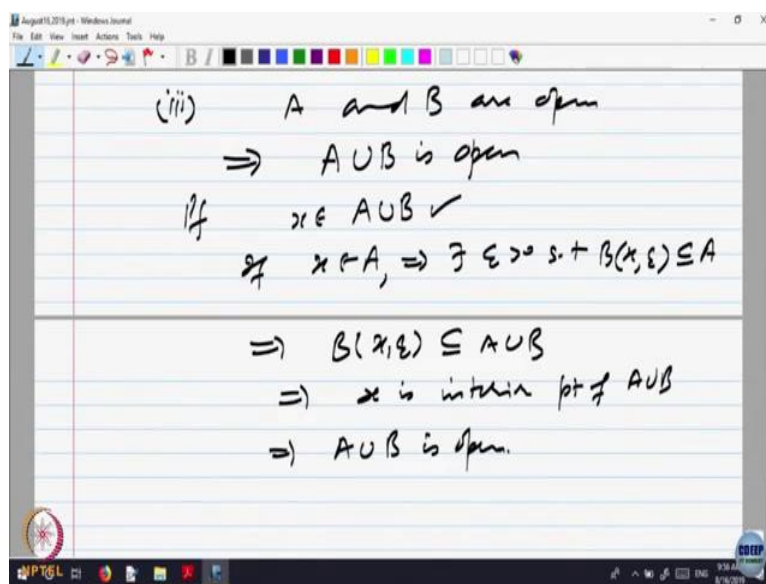 August16,2019.jnt - Windows Journal
File Edit View Insert Actions Tools Help
(iii) A and B are open
=> A ∪ B is open
Pf x ∈ A ∪ B ✓
If x ∈ A, => ∃ ε >0 s.t B(x, ε) ⊆ A
=> B(x, ε) ⊆ A ∪ B
=> x is interior pt of A ∪ B
=> A ∪ B is open.
NPTEL
CDEEP
ENG
8/16/2019